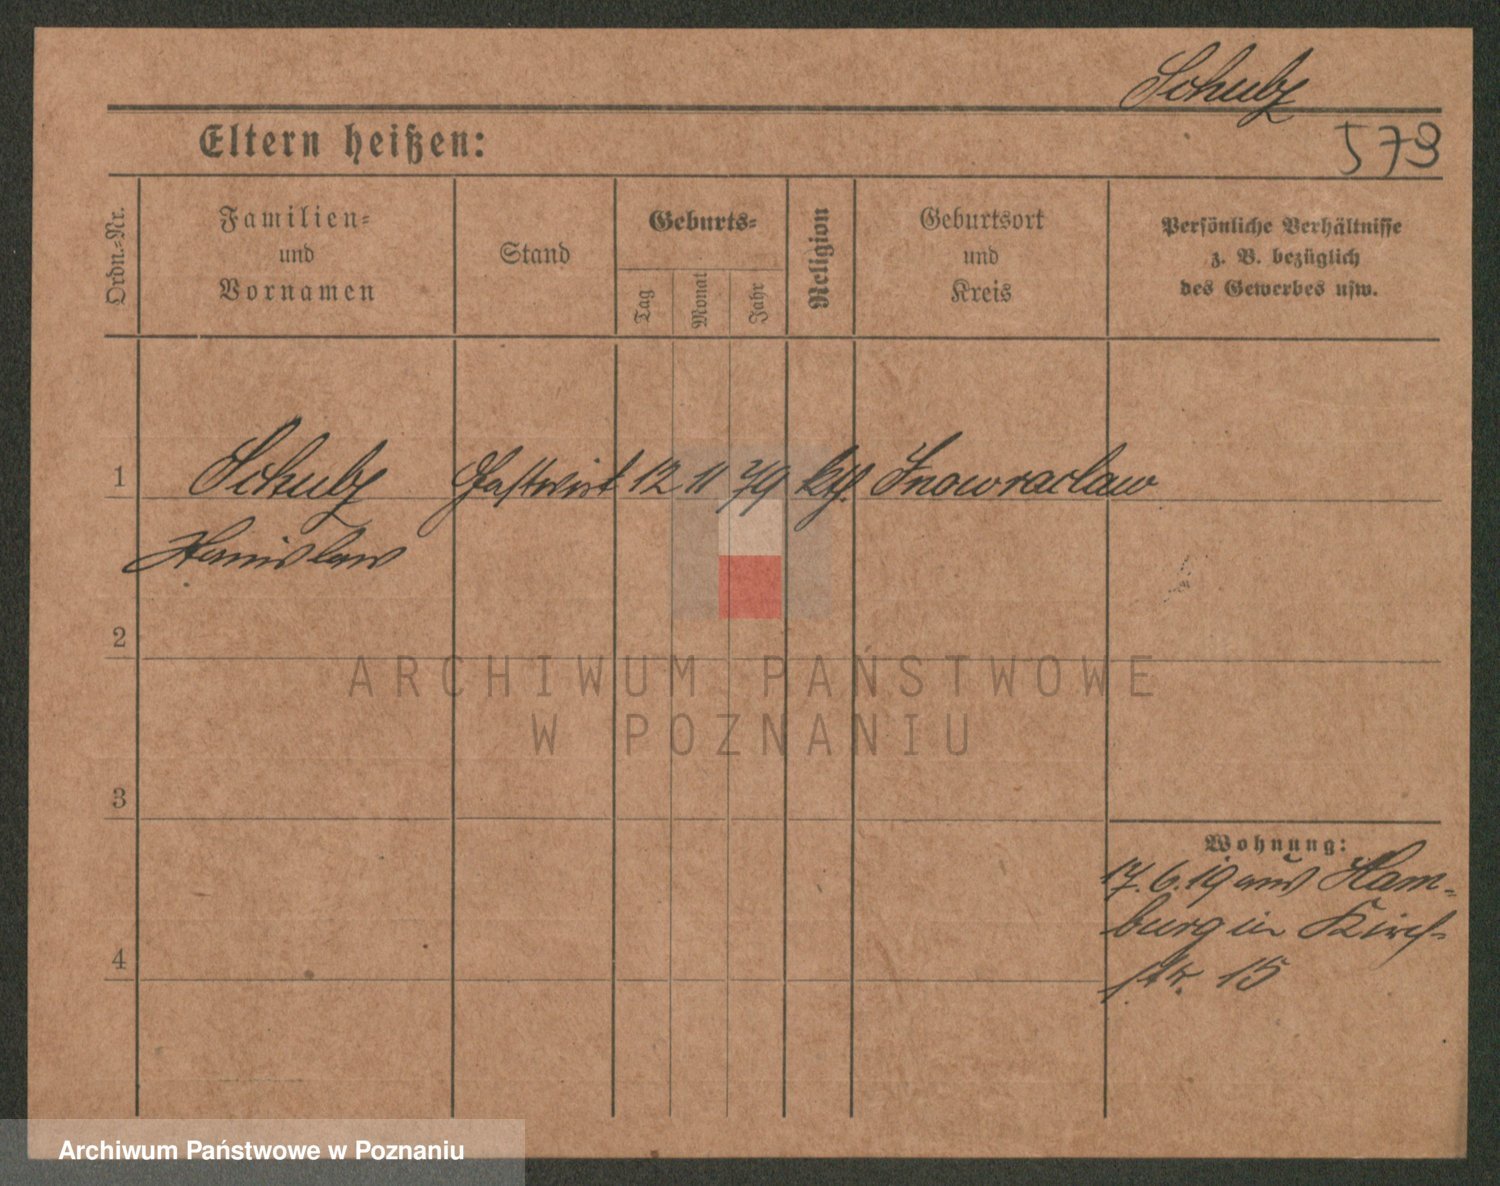 Schulz
Eltern heißen:
573
Ordn.-Nr.
Familien-
und
Vornamen
Stand
Geburts-
Tag
Monat
Jahr
Religion
Geburtsort
und
Kreis
Persönliche Verhältnisse
z. B. bezüglich
des Gewerbes usw.
1 Schulz Gastwirt 12 11 79 kth. Inowraclaw
Stanislaw
2
ARCHIWUM PAŃSTWOWE
W POZNANIU
3
Wohnung:
17.6.19 aus Ham-
burg in Kirch-
4
str. 15
Archiwum Państwowe w Poznaniu